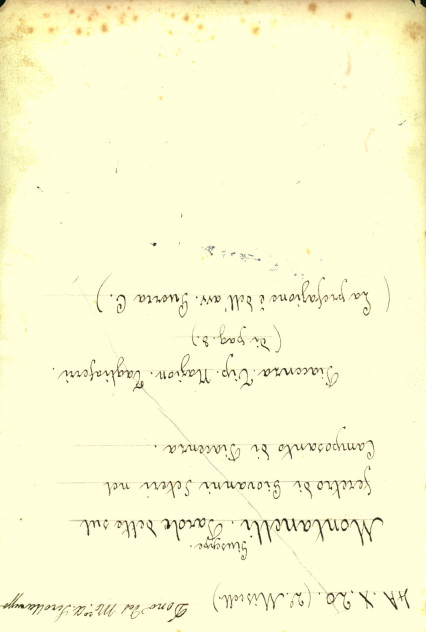 4A. X. 20. (2º. Miscell.)
Dono del M.º A.
Giuseppe
Montanelli. Parole dette sul
feretro di Giovanni Seteri nel
Camposanto di Piacenza.
Piacenza. Tip. Nazion. Tagliaferri.
(di pag. 8.)
(La prefazione è dell'avv. Guerra C.)